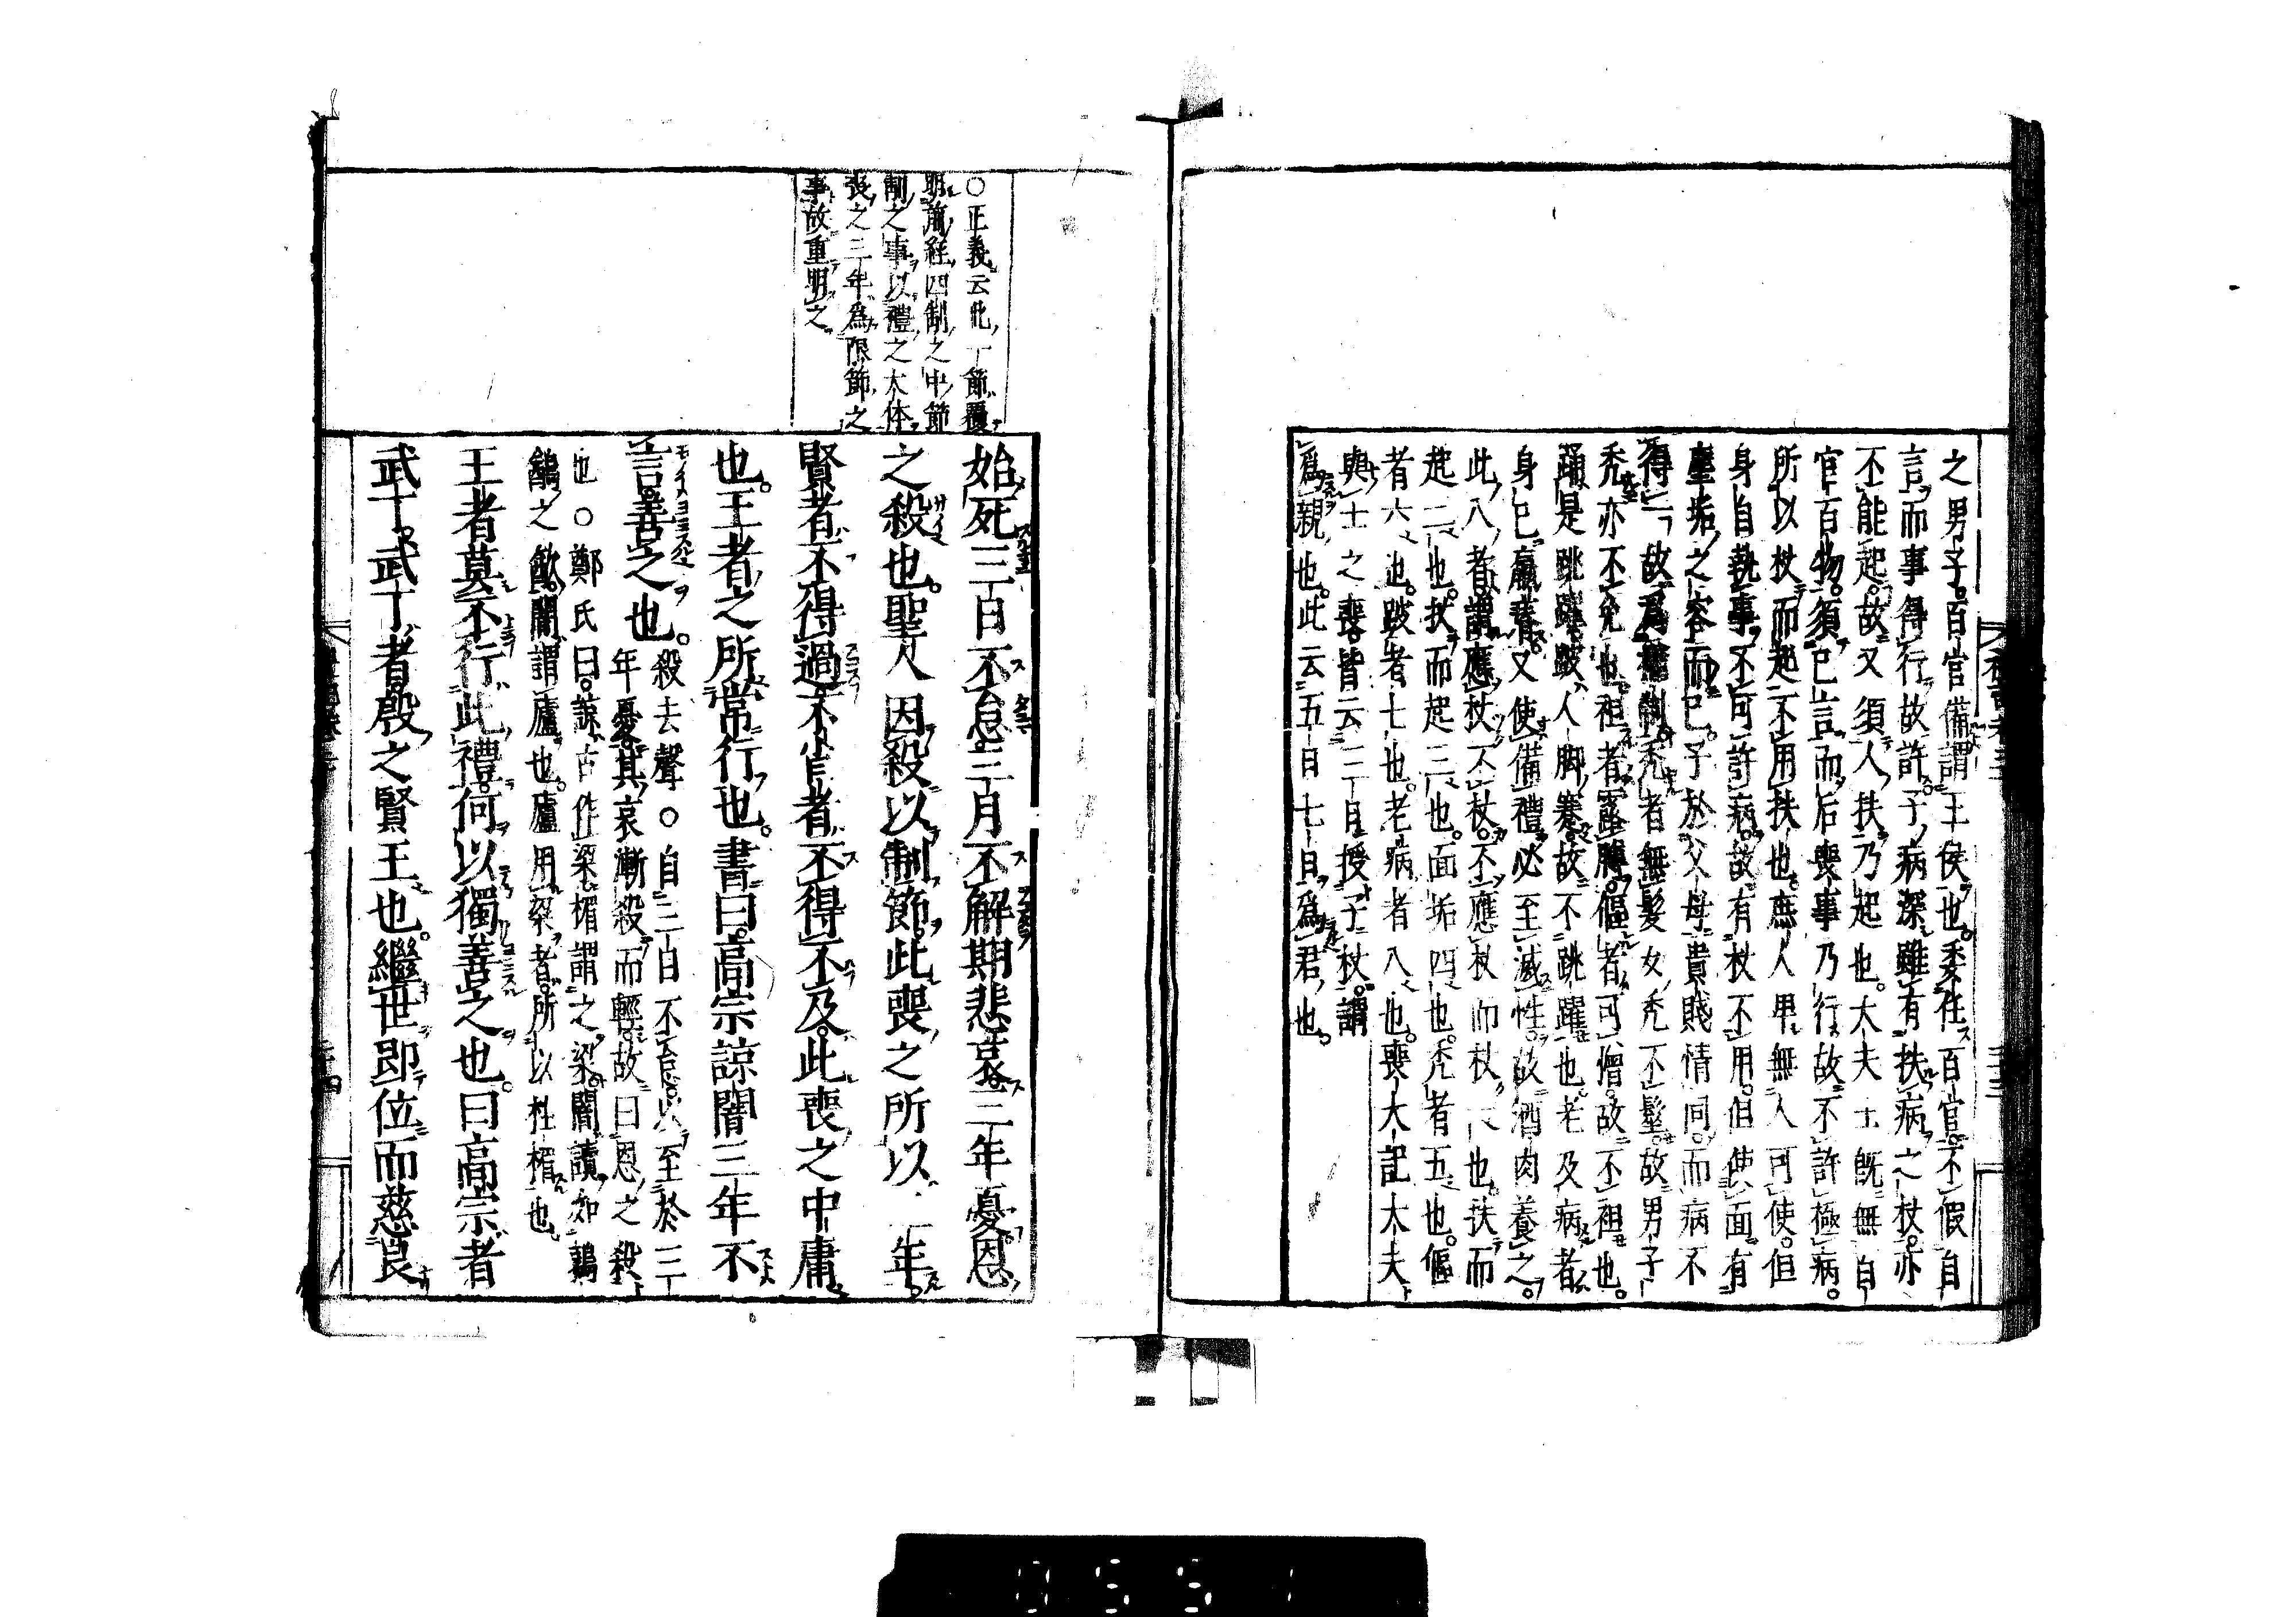 之男子百官備謂王侯也委任百官不假自
言而事得行故許子病深雖有扶病之杖亦
不能起故又須人扶乃起也大夫士既無自
官百物須已言而后喪事乃行故不許極病
所以杖而起不用扶也庶人卑無人可使但
身自執事不可許病故有杖不用但使面有
塵垢之容而已子於父母貴賤情同而病不
得一故爲權制禿者無髮女禿不髽故男子
禿亦不免也袒者露膊傴者可憎故不袒也
踊是跳躍跛人脚蹇故不跳躍也老及病者
身已羸瘠又使備禮必至滅性故酒肉養之
此八者謂應杖不杖不應杖而杖一也扶而
起二也杖而起三也面垢四也禿者五也傴
者六也跛者七也老病者八也喪大記大夫
與士之喪皆云三日授子杖謂
爲親也此云五日七日爲君也
○正義云此一節覆
明前經四制之中節
制之事以禮之大体
喪之三年爲限節之
事故重明之
始死三日不怠三月不解期悲哀三年憂恩
之殺也聖人因殺以制節此喪之所以三年
賢者不得過不肖者不得不及此喪之中庸
也王者之所常行也書曰高宗諒闇三年不
言善之也
殺去聲○自三日不怠以至於三
年憂其哀漸殺而輕故曰恩之殺
也○鄭氏曰諒古作梁楣謂之梁闇讀如鶉
鶴之鶴闇謂廬也廬用梁者所以柱楣也
王者莫不行此禮何以獨善之也曰高宗者
武丁武丁者殷之賢王也繼世即位而慈良
0551